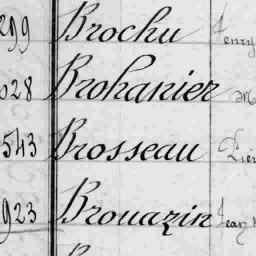 299 Brochu
028 Brohanier
543 Brosseau
923 Brouazin Jean